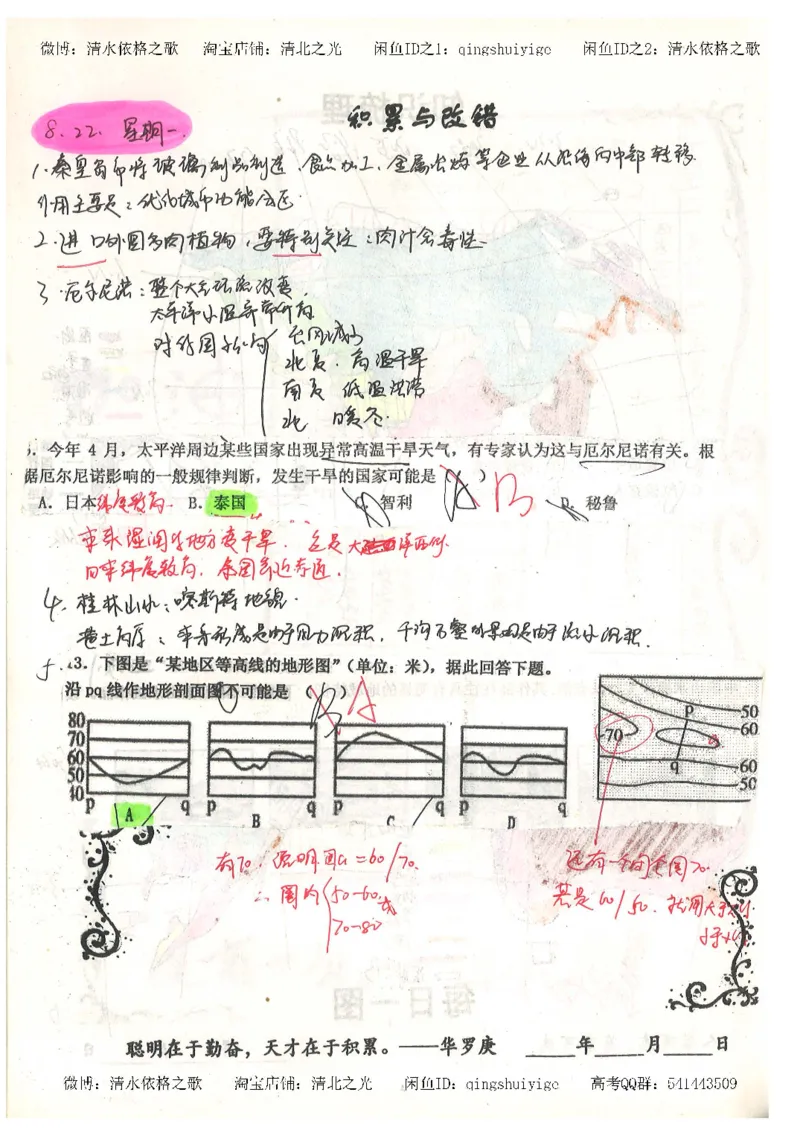 微博：清水依格之歌 淘宝店铺：清北之光 闲鱼ID之1：qingshuiyige 闲鱼ID之2：清水依格之歌
积累与改错
8.22. 星期一.
1.秦皇岛市将玻璃制品制造、食品加工、金属冶炼等企业从沿海向中部转移.
作用主要是：优化城市功能分区.
2.进口外国多肉植物，要特别关注：肉汁含毒性.
3.厄尔尼诺：整个大气环流改变.
太平洋水温异常所有
对我国影响
台风减少
北夏. 高温干旱
南夏 低温洪涝
北 暖冬.
今年 4 月，太平洋周边某些国家出现异常高温干旱天气，有专家认为这与厄尔尼诺有关。根
据厄尔尼诺影响的一般规律判断，发生干旱的国家可能是（ A B ）
A．日本 纬度较高. B．泰国 C．智利 D．秘鲁
本来湿润的地方变干旱. 应是大洋西侧.
日本纬度较高，泰国靠近赤道.
4.桂林山水：喀斯特地貌.
5.
3．下图是“某地区等高线的地形图”（单位：米），据此回答下题。
沿 pq 线作地形剖面图不可能是（ B A ）
80
70
60
50
40
p q p q p q p q
A B C D
p
q
70
50
60
60
50
有70，说明图a=60/70.
∴ 圈内
50-60
或
70-80
还有一个闭合圈70
若是60/50.
聪明在于勤奋，天才在于积累。——华罗庚 _____年_____月_____日
微博：清水依格之歌 淘宝店铺：清北之光 闲鱼ID：qingshuiyige 高考QQ群：541443509